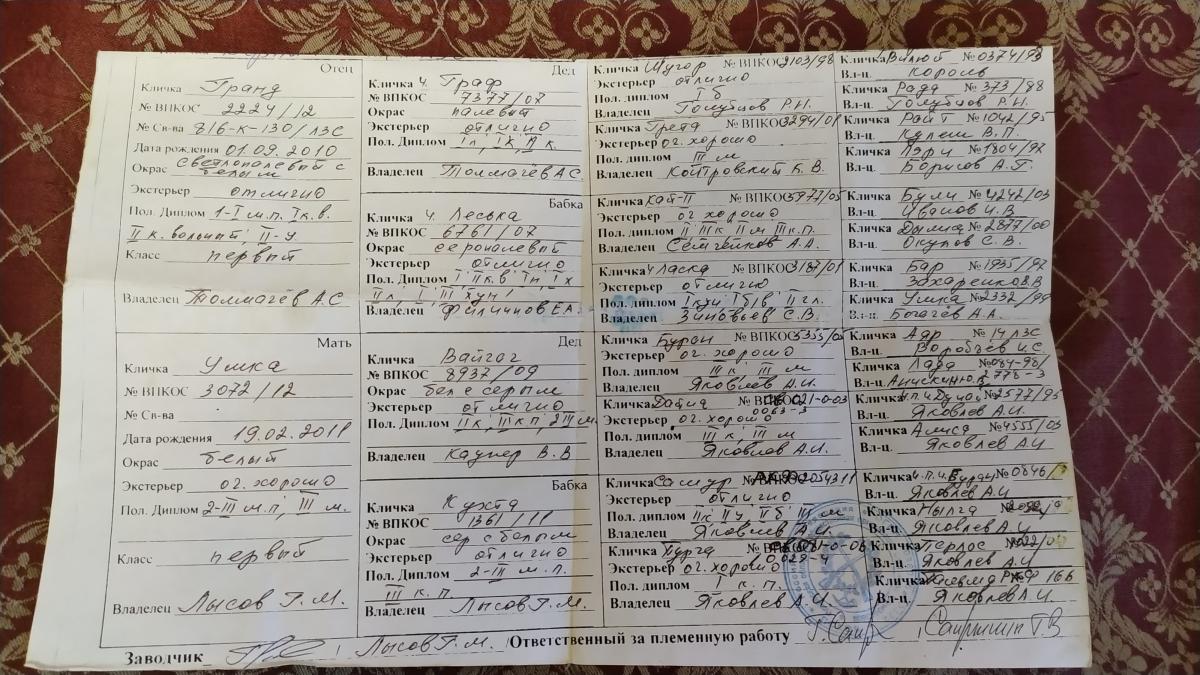 Отец
Кличка Гранд
№ ВПКОС 2224/12
№ Св-ва 816-к-130/ЛЗС
Дата рождения 01.09.2010
Окрас светлопалевый с белым
Экстерьер отлично
Пол. Диплом 1-I м.п. Iк.в.
II к. вольный, II-у.
Класс первый
Владелец Толмачёв А.С.
Мать
Кличка Умка
№ ВПКОС 3072/12
№ Св-ва
Дата рождения 19.02.2011
Окрас белый
Экстерьер оч. хорошо
Пол. Диплом 2-III м.п., III м.
Класс первый
Владелец Лысов Г.М.
Дед
Кличка Ч. Граф
№ ВПКОС 7377/07
Окрас палевый
Экстерьер отлично
Пол. Диплом
Владелец Толмачёв А.С.
Бабка
Кличка ч. Леська
№ ВПКОС 6761/07
Окрас серопалевый
Экстерьер отлично
Пол. Диплом
Владелец Филичнов Е.А.
Дед
Кличка Вайгач
№ ВПКОС 8937/09
Окрас бел с серым
Экстерьер отлично
Пол. Диплом IIк, IIIк п, 2III м.
Владелец Каунер В.В
Бабка
Кличка Кухта
№ ВПКОС 1361/11
Окрас сер с белым
Экстерьер отлично
Пол. Диплом 2-III м.п.
III к.п.
Владелец Лысов Г.М.
Кличка Шугар № ВПКОС 2103/98
Экстерьер отлично
Пол. диплом I б
Владелец Голубцов Р.Н.
Кличка Грета № ВПКОС 3294/01
Экстерьер оч. хорошо
Пол. диплом III м
Владелец Койтровский К.В.
Кличка Кай-II № ВПКОС 5977/05
Экстерьер оч хорошо
Пол. диплом II IIIк II м IIIк.п.
Владелец Семченков А.А.
Кличка ч Ласка № ВПКОС 3187/01
Экстерьер отлично
Пол. диплом
Владелец Зиновьев С.В.
Кличка Буран № ВПКОС 5355/05
Экстерьер оч. хорошо
Пол. диплом III к III м
Владелец Яковлев А.И.
Кличка № ВПКОС 021-0-03
Экстерьер оч. хорошо 0063-3
Пол. диплом III к, III м
Владелец Яковлев А.И.
Кличка Самур 2054311
Экстерьер отлично
Пол. диплом IIк II у II б III м
Владелец Яковлев А.И.
Кличка Пурга № 081-0-06
Экстерьер оч. хорошо 0029-4
Пол. диплом I к.п.
Владелец Яковлев А.И.
Кличка Вилюй № 0374/93
Вл-ц. Король
Кличка Рада № 373/88
Вл-ц Голубцов Р.Н.
Кличка Райт № 1042/95
Вл-ц. Кулеш В.П.
Кличка Пэри № 1804/92
Вл-ц Борисов А.Г.
Кличка Були № 4242/03
Вл-ц Иванов И.В
Кличка Дымка № 2877/00
Вл-ц. Окулов С.В.
Кличка Бар № 1935/97
Вл-ц. Захаренков В.
Кличка Умка № 2332/99
Вл-ц Богачев А.А.
Кличка Аяр № 14 ЛЗС
Вл-ц. Воробьёв И.С.
Кличка Лада № 084-98/
Вл-ц. 2778-3
Кличка ч.п.ч. № 2577/95
Вл-ц. Яковлев А.И.
Кличка Алиса № 4555/03
Вл-ц. Яковлев А.И
Кличка ч.п.ч. № 0646/
Вл-ц. Яковлев А.И
Кличка Нылга №
Вл-ц. Яковлев А.И
Кличка №
Вл-ц. Яковлев А.И
Кличка 166
Вл-ц Яковлев А.И
Заводчик Лысов Г.М. /Ответственный за племенную работу